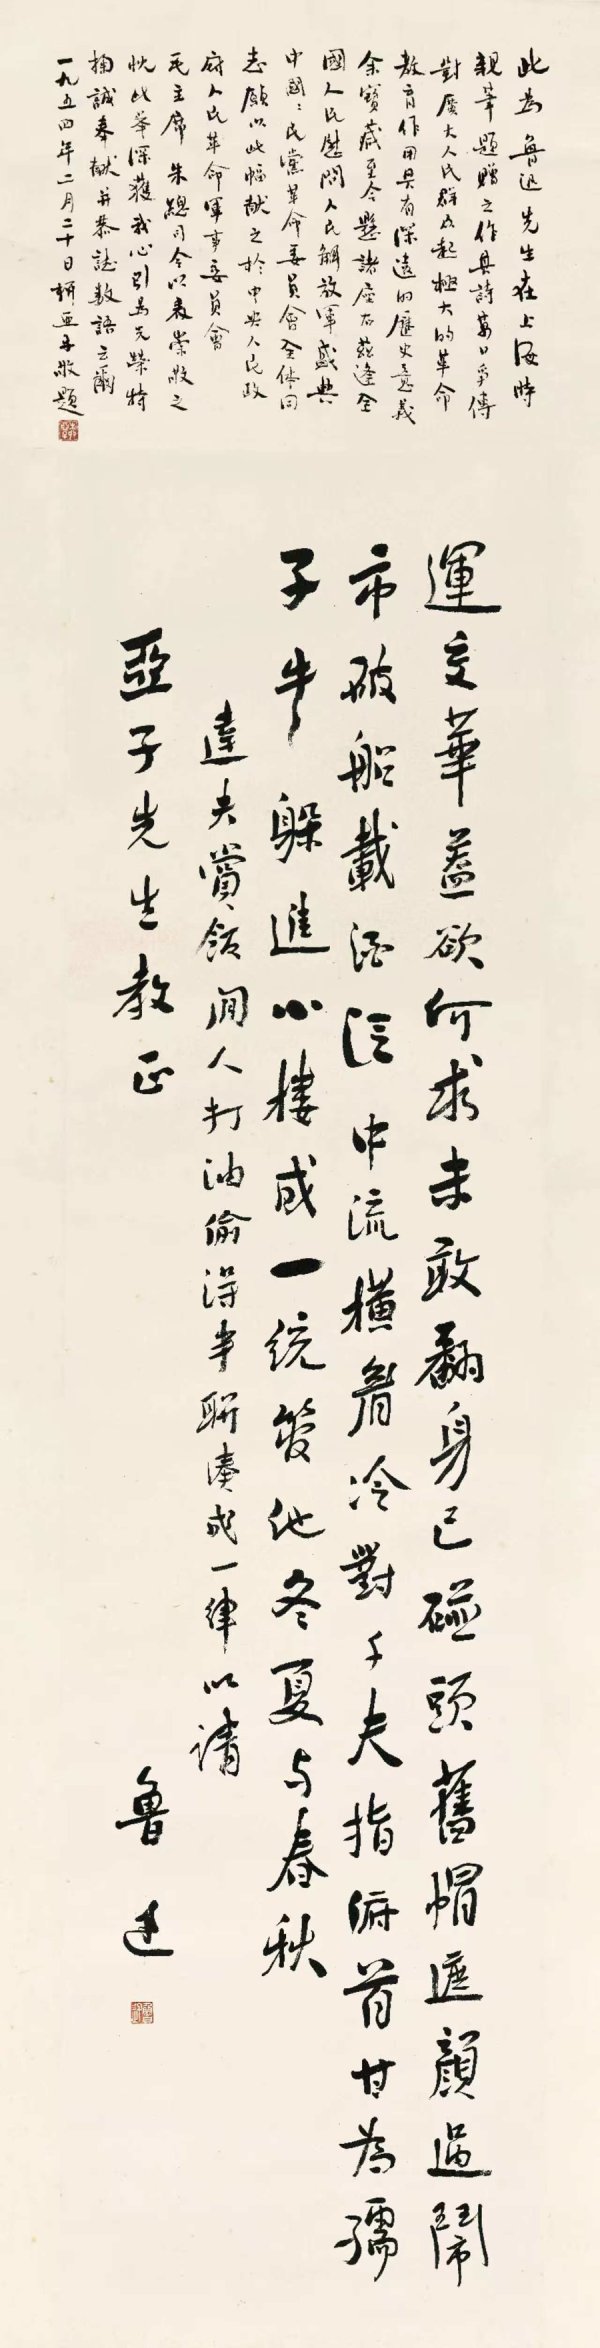 此为鲁迅先生在上海时
親筆題贈之作其詩萬口爭傳
對廣大人民群众起極大的革命
教育作用具有深遠的歷史意義
余寶藏至今懸諸座右茲逢全
國人民慰問人民解放軍盛典
中國〻民党革命委員會全体同
志願以此幅献之於中央人民政
府人民革命軍事委員會
毛主席 朱總司令以表崇敬之
忱此举深獲我心引為光榮特
掬誠奉献并恭誌数語云爾
一九五四年二月二十日柳亞子敬題
運交華盖欲何求未敢翻身已碰頭舊帽遮顏過鬧
市破船載酒泛中流橫眉冷對千夫指俯首甘為孺
子牛躲進小樓成一統管他冬夏与春秋
達夫賞飯閒人打油偷得半聯湊成一律以請
亞子先生教正
魯迅